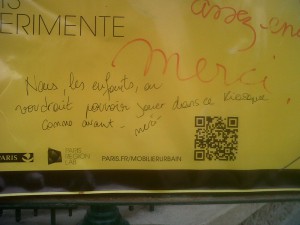 IS
ERIMENTE
assez en
merci
Nous, les enfants, on
voudrait pouvoir jouer dans ce kiosque
comme avant. merci
PARIS
PARIS
REGION
LAB
PARIS.FR/MOBILIERURBAIN